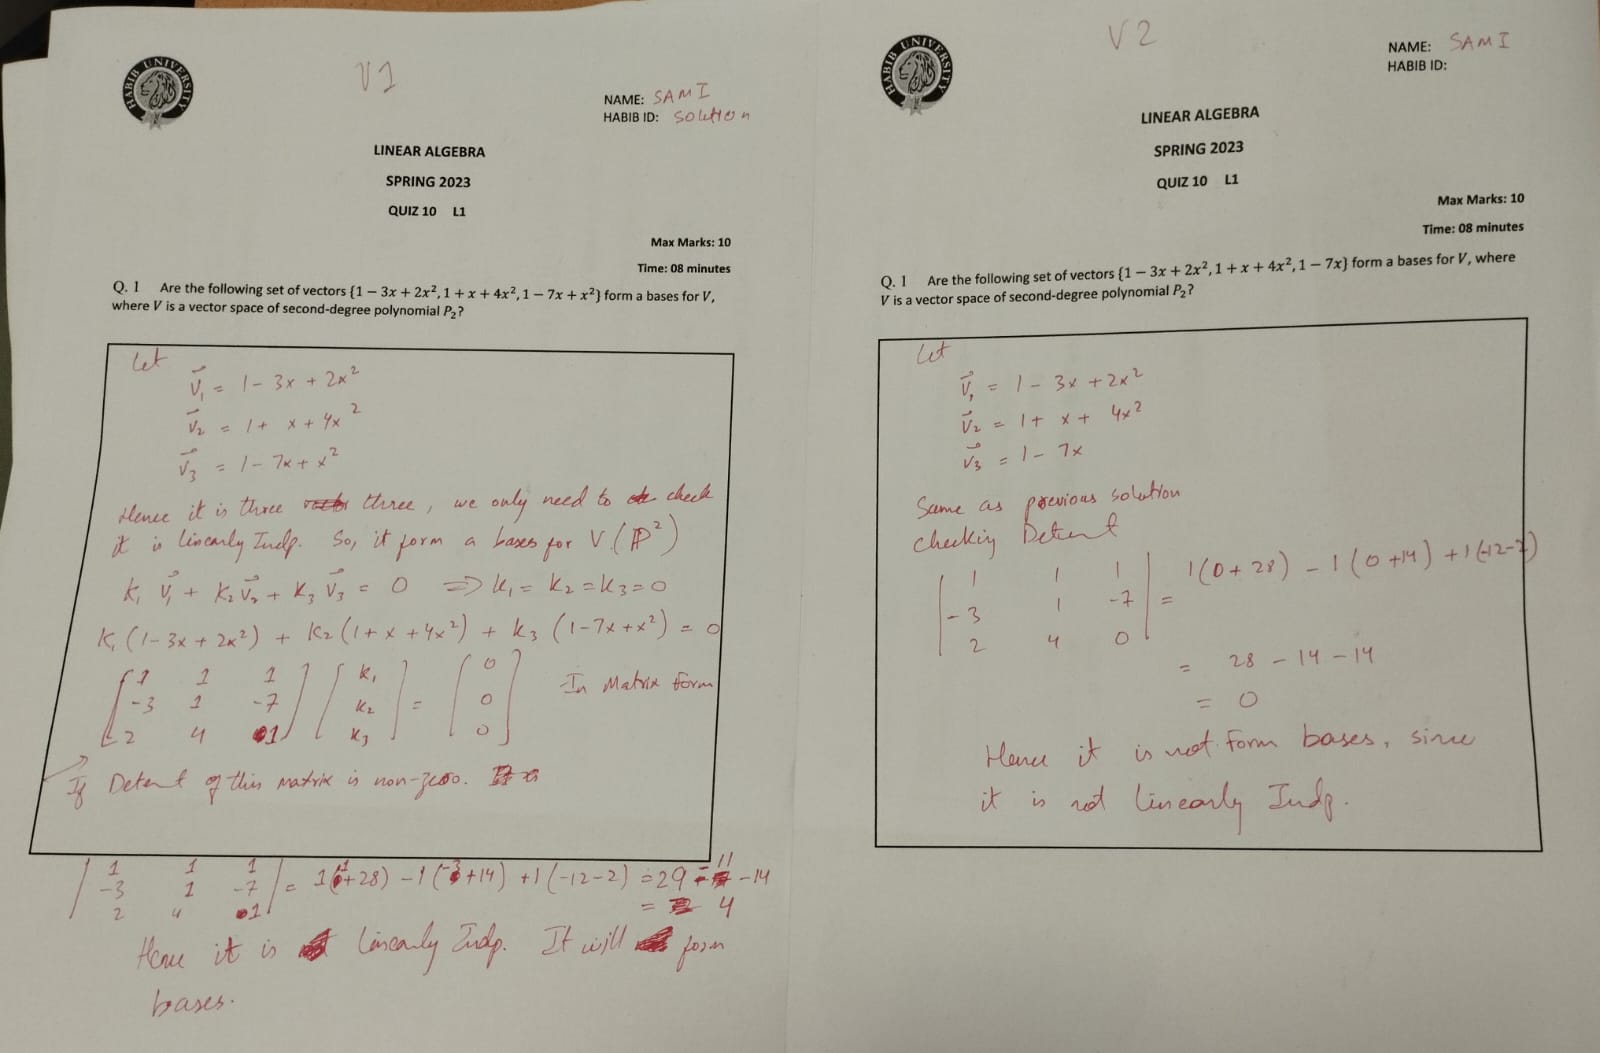 V1
HABIB UNIVERSITY
NAME: SAMI
HABIB ID: Solution
LINEAR ALGEBRA
SPRING 2023
QUIZ 10 L1
Max Marks: 10
Time: 08 minutes
Q. 1 Are the following set of vectors {1 − 3x + 2x², 1 + x + 4x², 1 − 7x + x²} form a bases for V,
where V is a vector space of second-degree polynomial P₂?
Let
v⃗₁ = 1 - 3x + 2x²
v⃗₂ = 1 + x + 4x²
v⃗₃ = 1 - 7x + x²
Hence it is three three, we only need to check
it is linearly Indp. So, it form a bases for V (ℙ²)
K₁ v⃗₁ + K₂ v⃗₂ + K₃ v⃗₃ = 0 ⇒ K₁ = K₂ = K₃ = 0
K₁ (1 - 3x + 2x²) + K₂ (1 + x + 4x²) + K₃ (1 - 7x + x²) = 0
[1 1 1] [K₁] [0]
[-3 1 -7] [K₂] = [0] In Matrix form
[2 4 1] [K₃] [0]
If Detent of this matrix is non-zero.
|1 1 1|
|-3 1 -7| = 1(1+28) - 1(-3+14) + 1(-12-2) = 29 - 11 - 14
|2 4 1| = 4
Hence it is Linearly Indp. It will form
bases.
V2
HABIB UNIVERSITY
NAME: SAMI
HABIB ID:
LINEAR ALGEBRA
SPRING 2023
QUIZ 10 L1
Max Marks: 10
Time: 08 minutes
Q. 1 Are the following set of vectors {1 − 3x + 2x², 1 + x + 4x², 1 − 7x} form a bases for V, where
V is a vector space of second-degree polynomial P₂?
Let
v⃗₁ = 1 - 3x + 2x²
v⃗₂ = 1 + x + 4x²
v⃗₃ = 1 - 7x
Same as previous solution
checking Detent
|1 1 1|
|-3 1 -7| = 1(0+28) - 1(0+14) + 1(-12-2)
|2 4 0|
= 28 - 14 - 14
= 0
Hence it is not form bases, since
it is not linearly Indp.